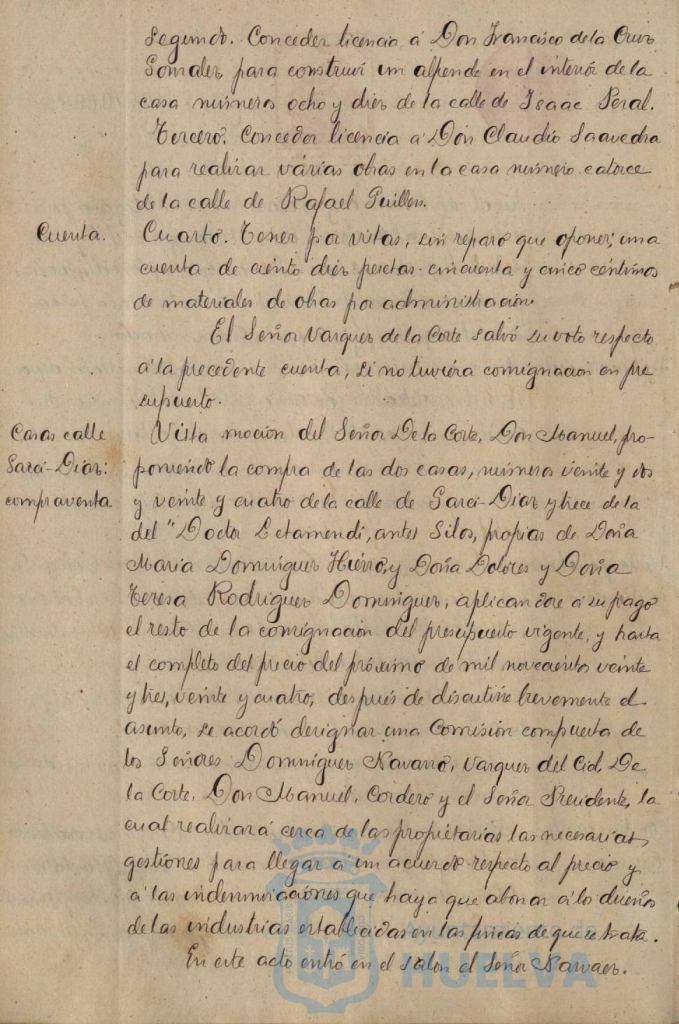 Segundo. Conceder licencia á Don Francisco de la Cruz
Gonzalez para construir un alpende en el interior de la
casa números ocho y diez de la calle de Isaac Peral.
Tercero. Conceder licencia á Don Claudio Saavedra
para realizar várias obras en la casa número catorce
de la calle de Rafael Guillen.
Cuenta.
Cuarto. Tener por vistas, sin reparo que oponer, una
cuenta de ciento diez pesetas cincuenta y cinco céntimos
de materiales de obras por administración.
El Señor Vazquez de la Corte salvó su voto respecto
á la precedente cuenta, si no tuviera consignación en pre
supuesto.
Casas calle
Garci-Diaz:
compraventa.
Vista moción del Señor De la Corte, Don Manuel, pro-
poniendo la compra de las dos casas, números veinte y dos
y veinte y cuatro de la calle de Garci-Diaz y trece de la
del "Doctor Letamendi, antes Silos, propias de Doña
María Dominguez Hierro, y Doña Dolores y Doña
Teresa Rodriguez Dominguez, aplicandose á su pago
el resto de la consignación del presupuesto vigente, y hasta
el completo del precio del próximo de mil novecientos veinte
y tres, veinte y cuatro, después de discutirse brevemente el
asunto, se acordó designar una Comisión compuesta de
los Señores Dominguez Navarro, Vazquez del Cid, De
la Corte, Don Manuel, Cordero y el Señor Presidente, la
cual realizará cerca de las propietarias las necesarias
gestiones para llegar á un acuerdo respecto al precio y
á las indemnizaciones que haya que abonar á los dueños
de las industrias establecidas en las fincas de que se trata.
En este acto entró en el salon el Señor Narvaez.
HUELVA